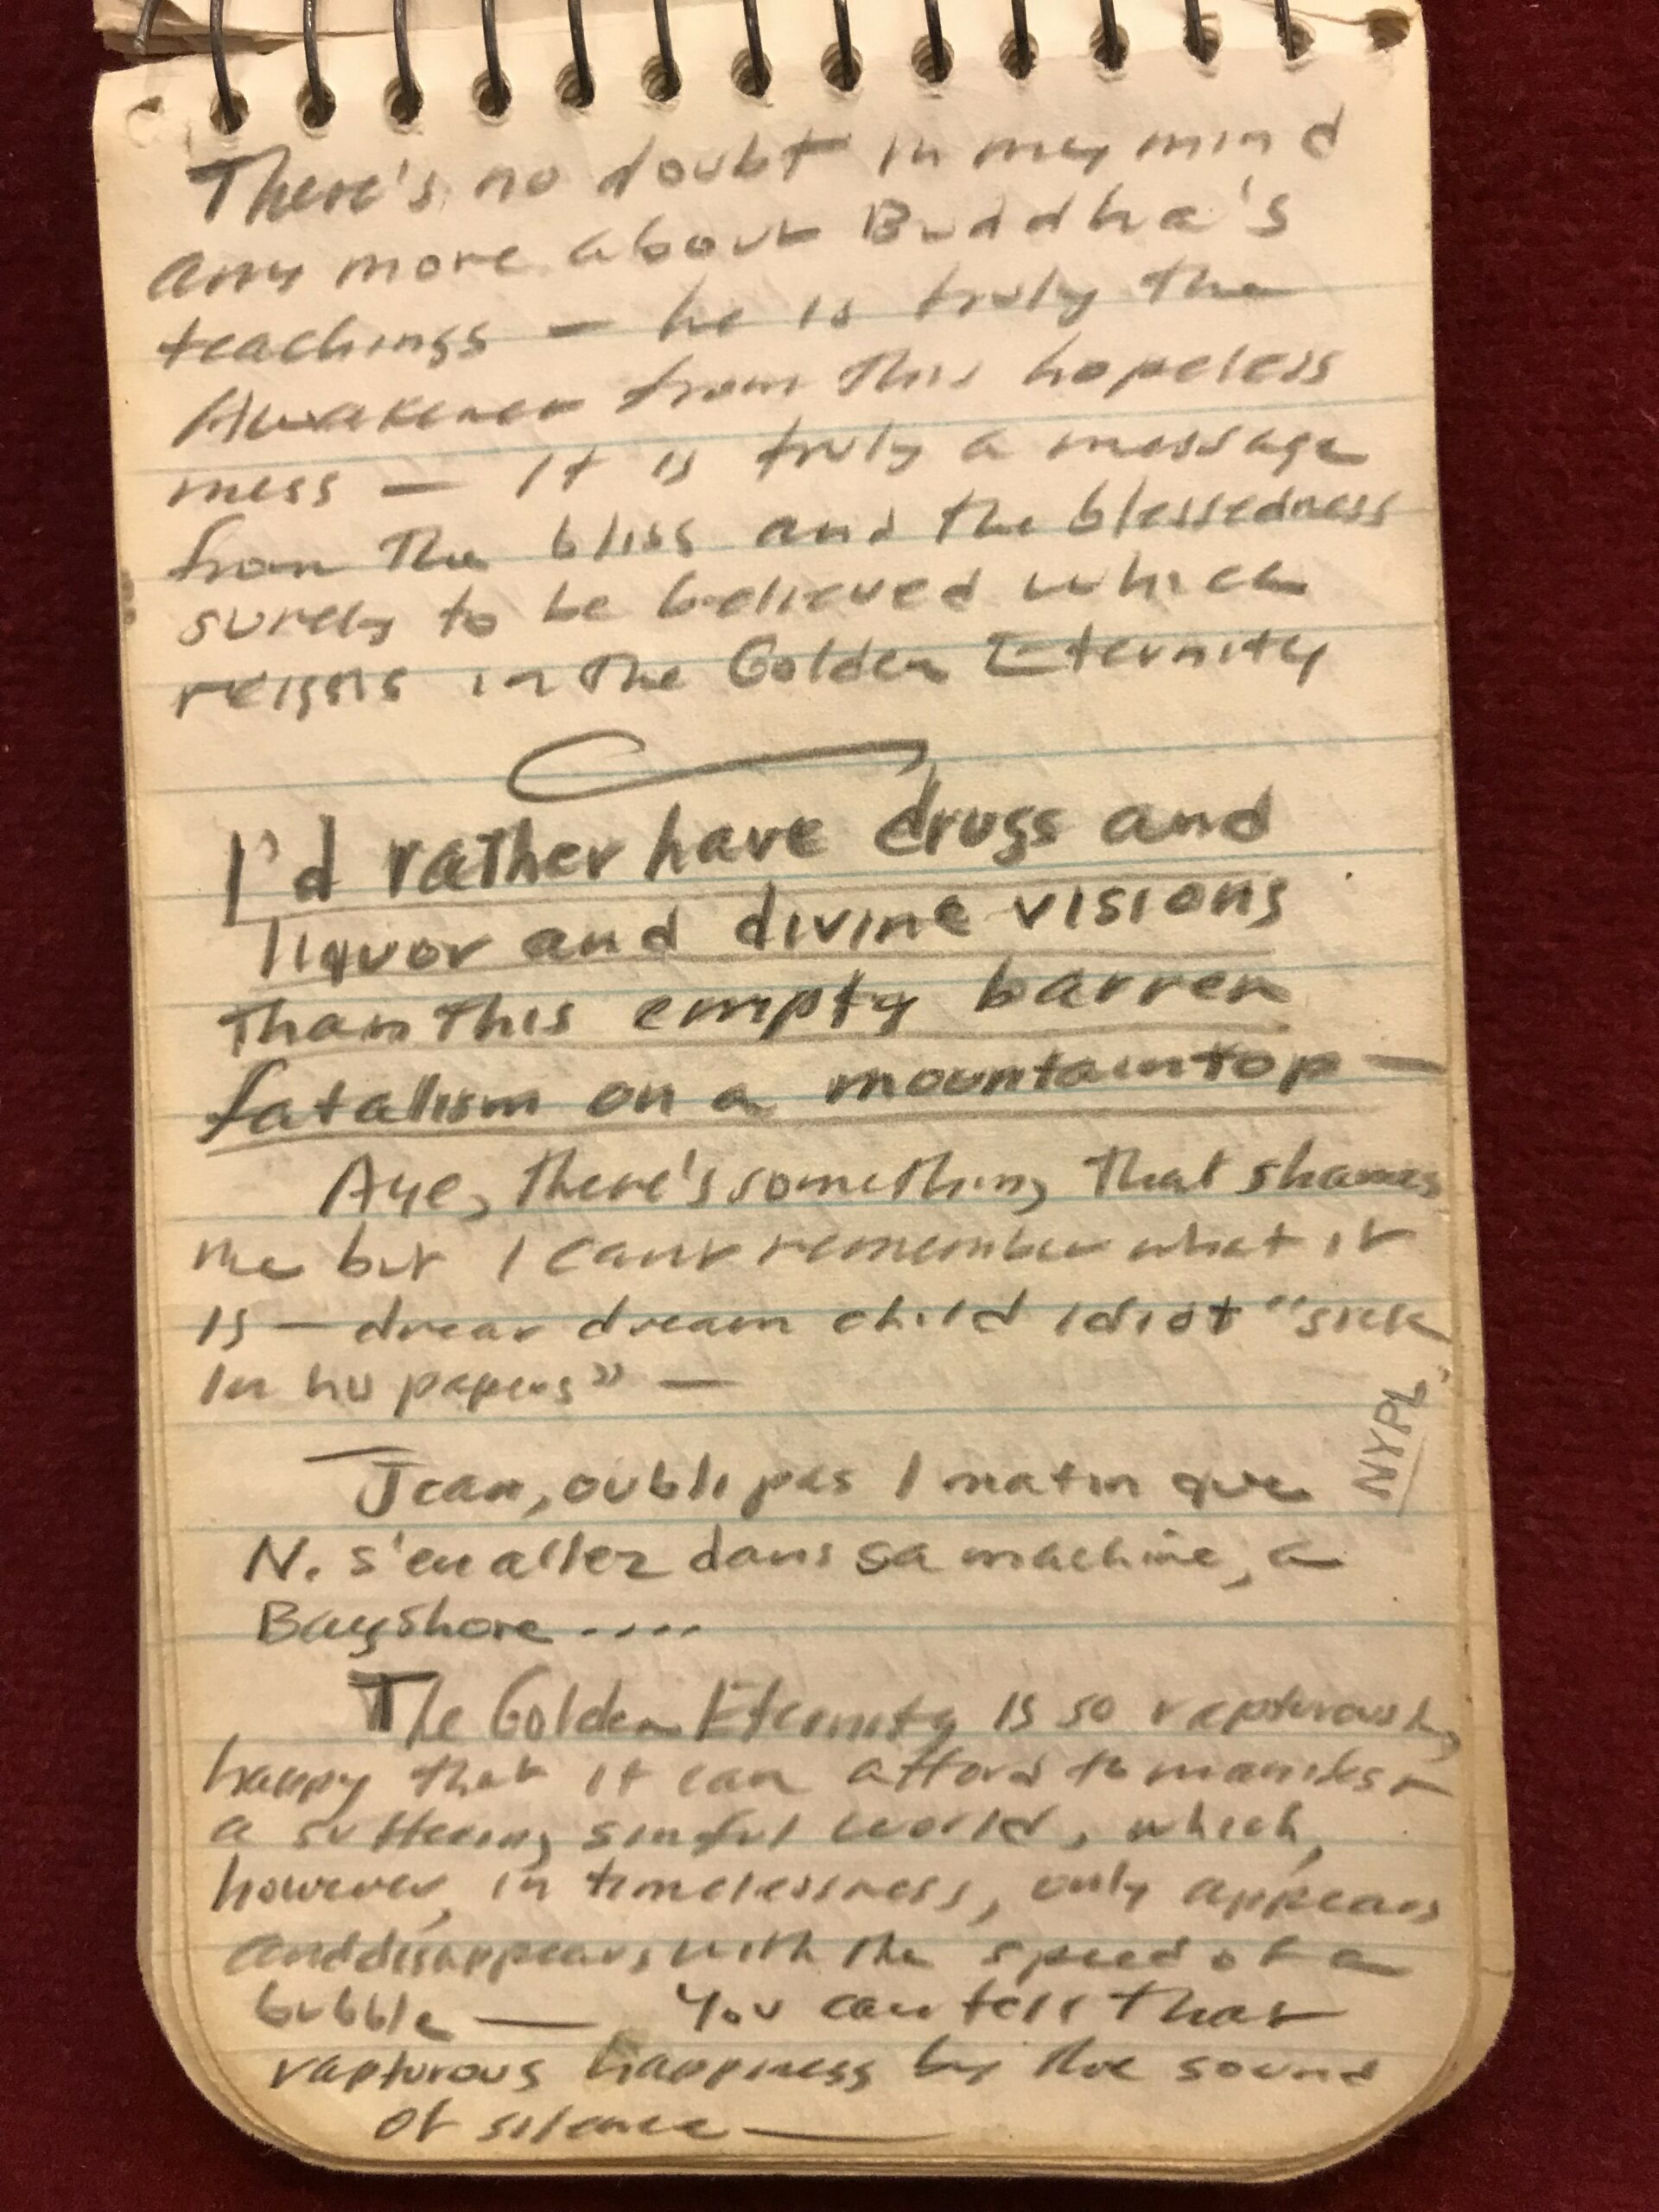 There's no doubt in my mind
any more about Buddha's
teachings — he is truly the
Awakener from this hopeless
mess — It is truly a message
from the bliss and the blessedness
surely to be believed which
reigns in the Golden Eternity
I'd rather have drugs and
liquor and divine visions
than this empty barren
fatalism on a mountaintop —
Aye, there's something that shames
me but I cant remember what it
is — drear dream child idiot "sick
in his papers" —
Jean, oubli pas l matin que
N. s'en allez dans sa machine, a
Bayshore ....
NYPL
The Golden Eternity is so rapturously
happy that it can afford to manifest
a suffering sinful world, which,
however, in timelessness, only appears
and disappears with the speed of a
bubble — You can tell that
rapturous happiness by the sound
of silence —